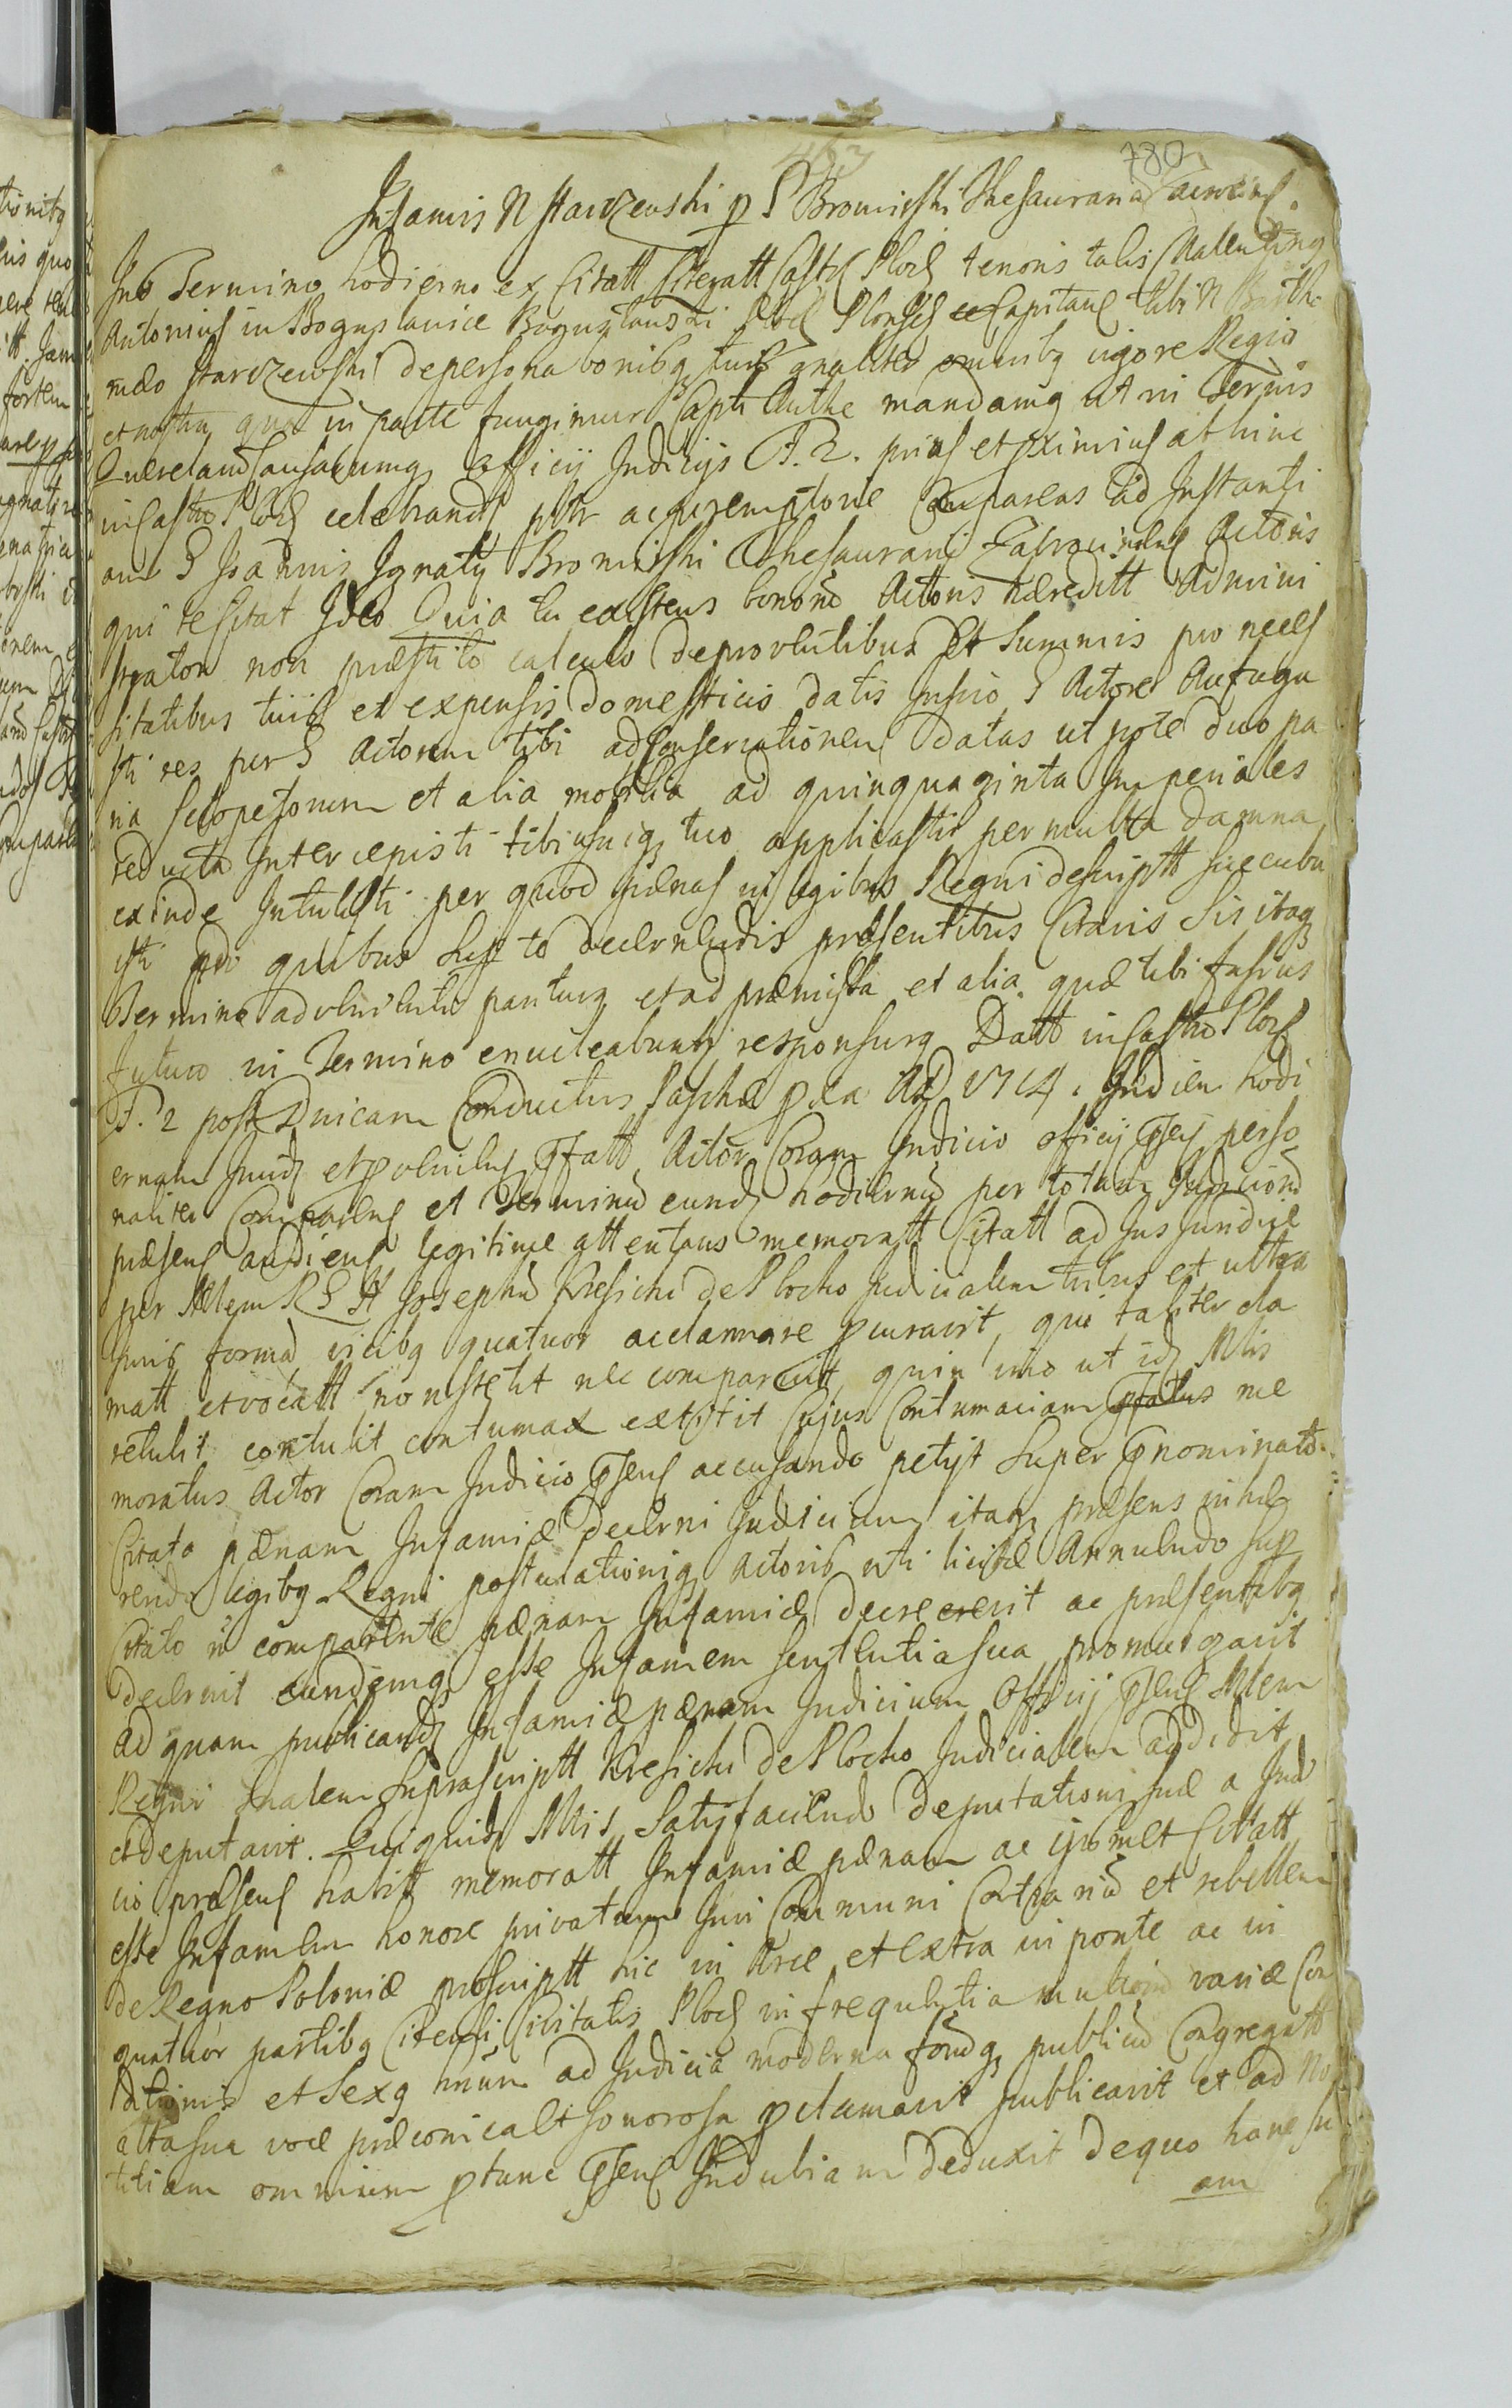 780
Infamis N Starczewski p G Bromirski Thesaurario Zacrocinen.
In Termino hodierno ex Citatt Literatt Castr Plocen tenoris talis Valentinq
Antonius in Boguslawice Boguslawski Plocen Plonscen Capitaneus tibi N Bartho
mæo Starczewski de persona bonisq tuis gnaliter omnibq vigore Regio
et nostra qua in parte fungimur Captli Authe mandamq ut in Ternis
Querelarum Causarumq Officij Judicijs F. 2. prius et proximius ab hinc
in Castro Plocen celebrandis pstr ac peremptorie compareas ad Instanti
am G Joannis Ignatij Bromirski Thesaurarij Zacrocimen Actoris
qui te Citat Ideo Quia tu existens bonorum Actoris hæreditt Admini
strator non præstito calculo de proventibus et summis pro neces
sitatibus tuis et expensis domesticis datis inscio G Actore Aufugi
sti res per G Actorem tibi ad conservationem datas ut pote duo pa
ria Sclopetorum et alia mobilia ad quinquaginta Imperiales
reducta Intercepisti tibi usuiq tuo applicasti permulta damna
exinde Intulisti per quod pænas in legibus Regni descriptt succubu
isti pro quibus super te decernendis præsentibus Citaris Sis itaq
Termino ad videndum pariturq et ad præmissa et alia quæ tibi fusius
futuro in Termino enucleabuntur responsurq Datt in Castro Plocen
F. 2 post Dnicam Conductus Paschæ pxa AD 1714. In diem hodi
ernam Juridice et pvenien Pfatt Actor Coram Judicio officij Psen perso
naliter Comparens et Terminum eundem hodiernum per totam Judiciorum
præsens audiens legitime attentans memoratt Citatt ad Jus juridice
per Mlem R G H Josephum Kresicki de Plocko Judicialem tribus et ultra
Juris forma vicibq quatuor acclamare pcuravit, qui taliter cla
matt et vocatt non stetit nec comparuit, quin imo ut idem Mlis
retulit contulit contumax extitit Cujus Contumaciam Pfatus me
moratus Actor Coram Judicio Psen accusando petijt super Pnominato
Citato pænam Infamiæ decerni Judicium itaq præsens inhæ
rendo legibq Regni postulationiq Actoris uti licitæ Annuendo sup
Citato n comparente pænam Infamiæ decreverit ac præsentibq
decernit eundemq esse Infamem sententia sua promulgavit
Ad quam publicandam Infamiæ pænam Judicium Officij Psens Mlem
Regni gnalem supra scriptt Kresicki de Plocko Judicialem addidit
et deputavit. Qui quidem Mlis satisfaciendo deputationi suæ a Judi
cio præsens habitt memoratt Infamiæ pænam ac ipsum et Citatt
esse Infamem honore privatum Juri Communi Contrarium et rebellem
de Regno Poloniæ proscriptt hic in Arce et extra in ponte ac in
quatuor partibq Circuli Civitatis Plocen in frequentia multorum variæ Con
ditionis et Sexq hnum ad Judicia moderna forumq publicum Congregatt
alta sua voce præconicalt sonorosa pclamavit publicavit et ad No
titiam omnium ptunc Psens Indubiam deduxit de quo hanc su
am